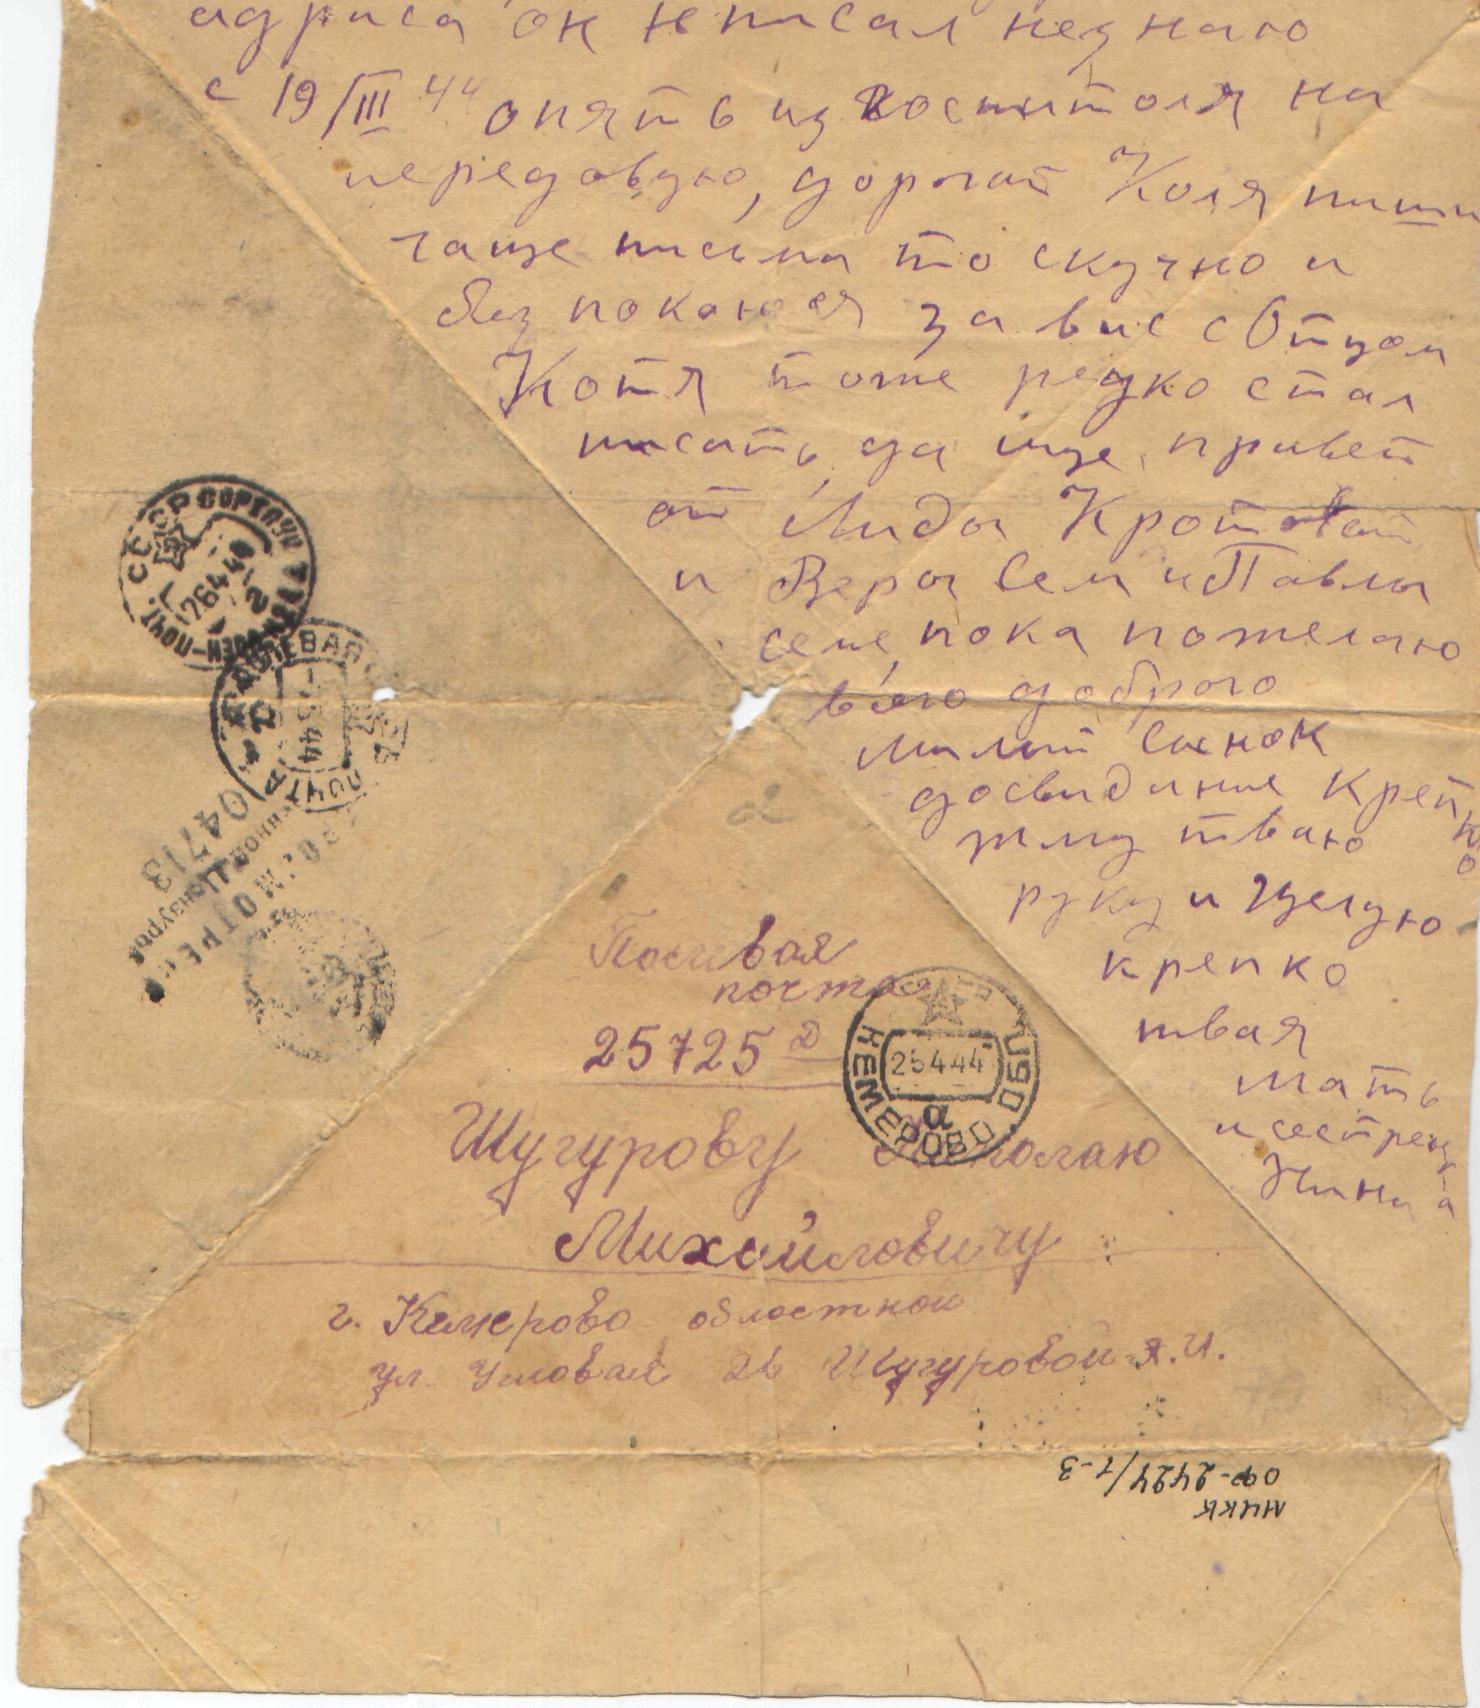 адриса он неписал незнаю
с 19/III 44 опять из госпитоля на
передавую, дорогат Коля пиши
чаще писма то скучно и
без покоюся за вас с Отцом
Котя тоже редко стал
писать да ище привет
от Лиды Кротовай
и Веры Сем и Павлы
семе, пока пожелаю
всего доброго
милый сынок
досвидиние крепко
жму тваю
руку и Целую
крепко
твая
мать
и сестренка
Нина
Полевая
почта
25725 Д
Шугурову Николаю
Михайловичу
г. Кемерово областной
ул. Угловая 26 Шугуровой Я.И.
СССР
КЕМЕРОВО ОБЛ.
25444
а
СССР СОРТПУНКТ
ВОЕН-ПОЧТ.
26444
ПОЛЕВАЯ ПОЧТА
-7544
ПРОСМОТРЕНО
Военной Цензурой
04713
МИКК
ОФ-2424/1-3